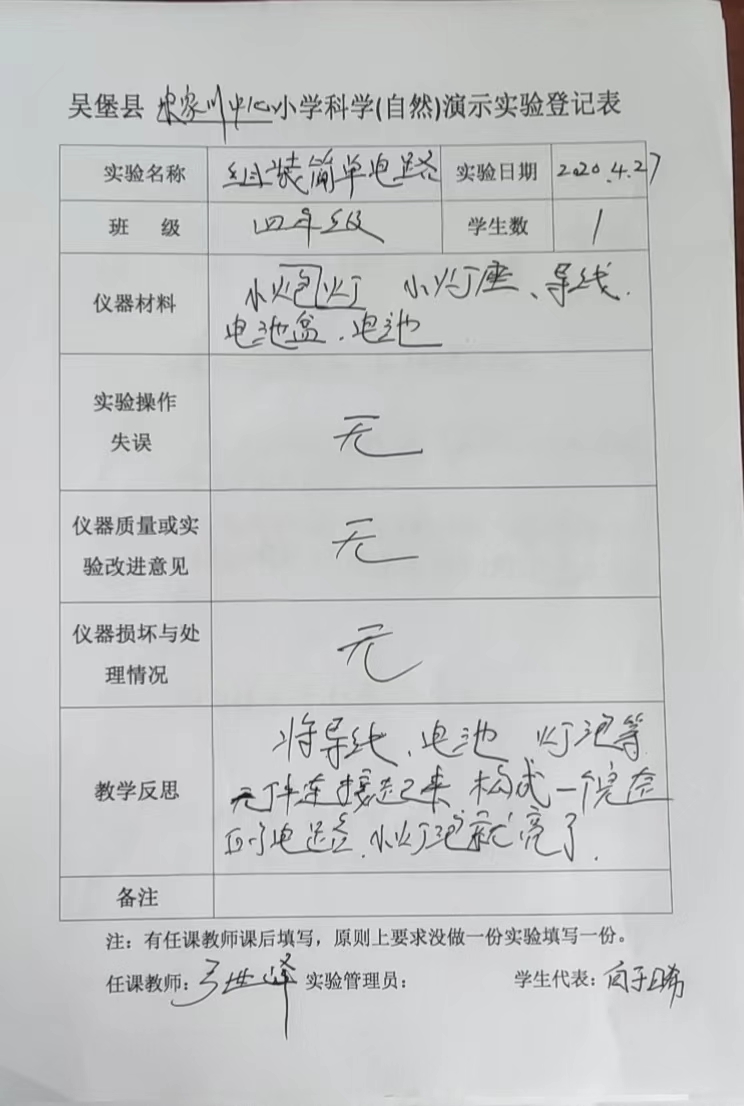 吴堡县 宋家川中心小学科学(自然)演示实验登记表
实验名称 组装简单电路 实验日期 2020.4.27
班 级 四年级 学生数 1
仪器材料
小灯 小灯座、导线.
电池盒.电池
实验操作
失误
无
仪器质量或实
验改进意见
无
仪器损坏与处
理情况
无
教学反思
将导线、电池 灯泡等
元件连接起来 构成一个完整
的电路.小灯泡就亮了.
备注
注：有任课教师课后填写，原则上要求没做一份实验填写一份。
任课教师: 实验管理员: 学生代表: